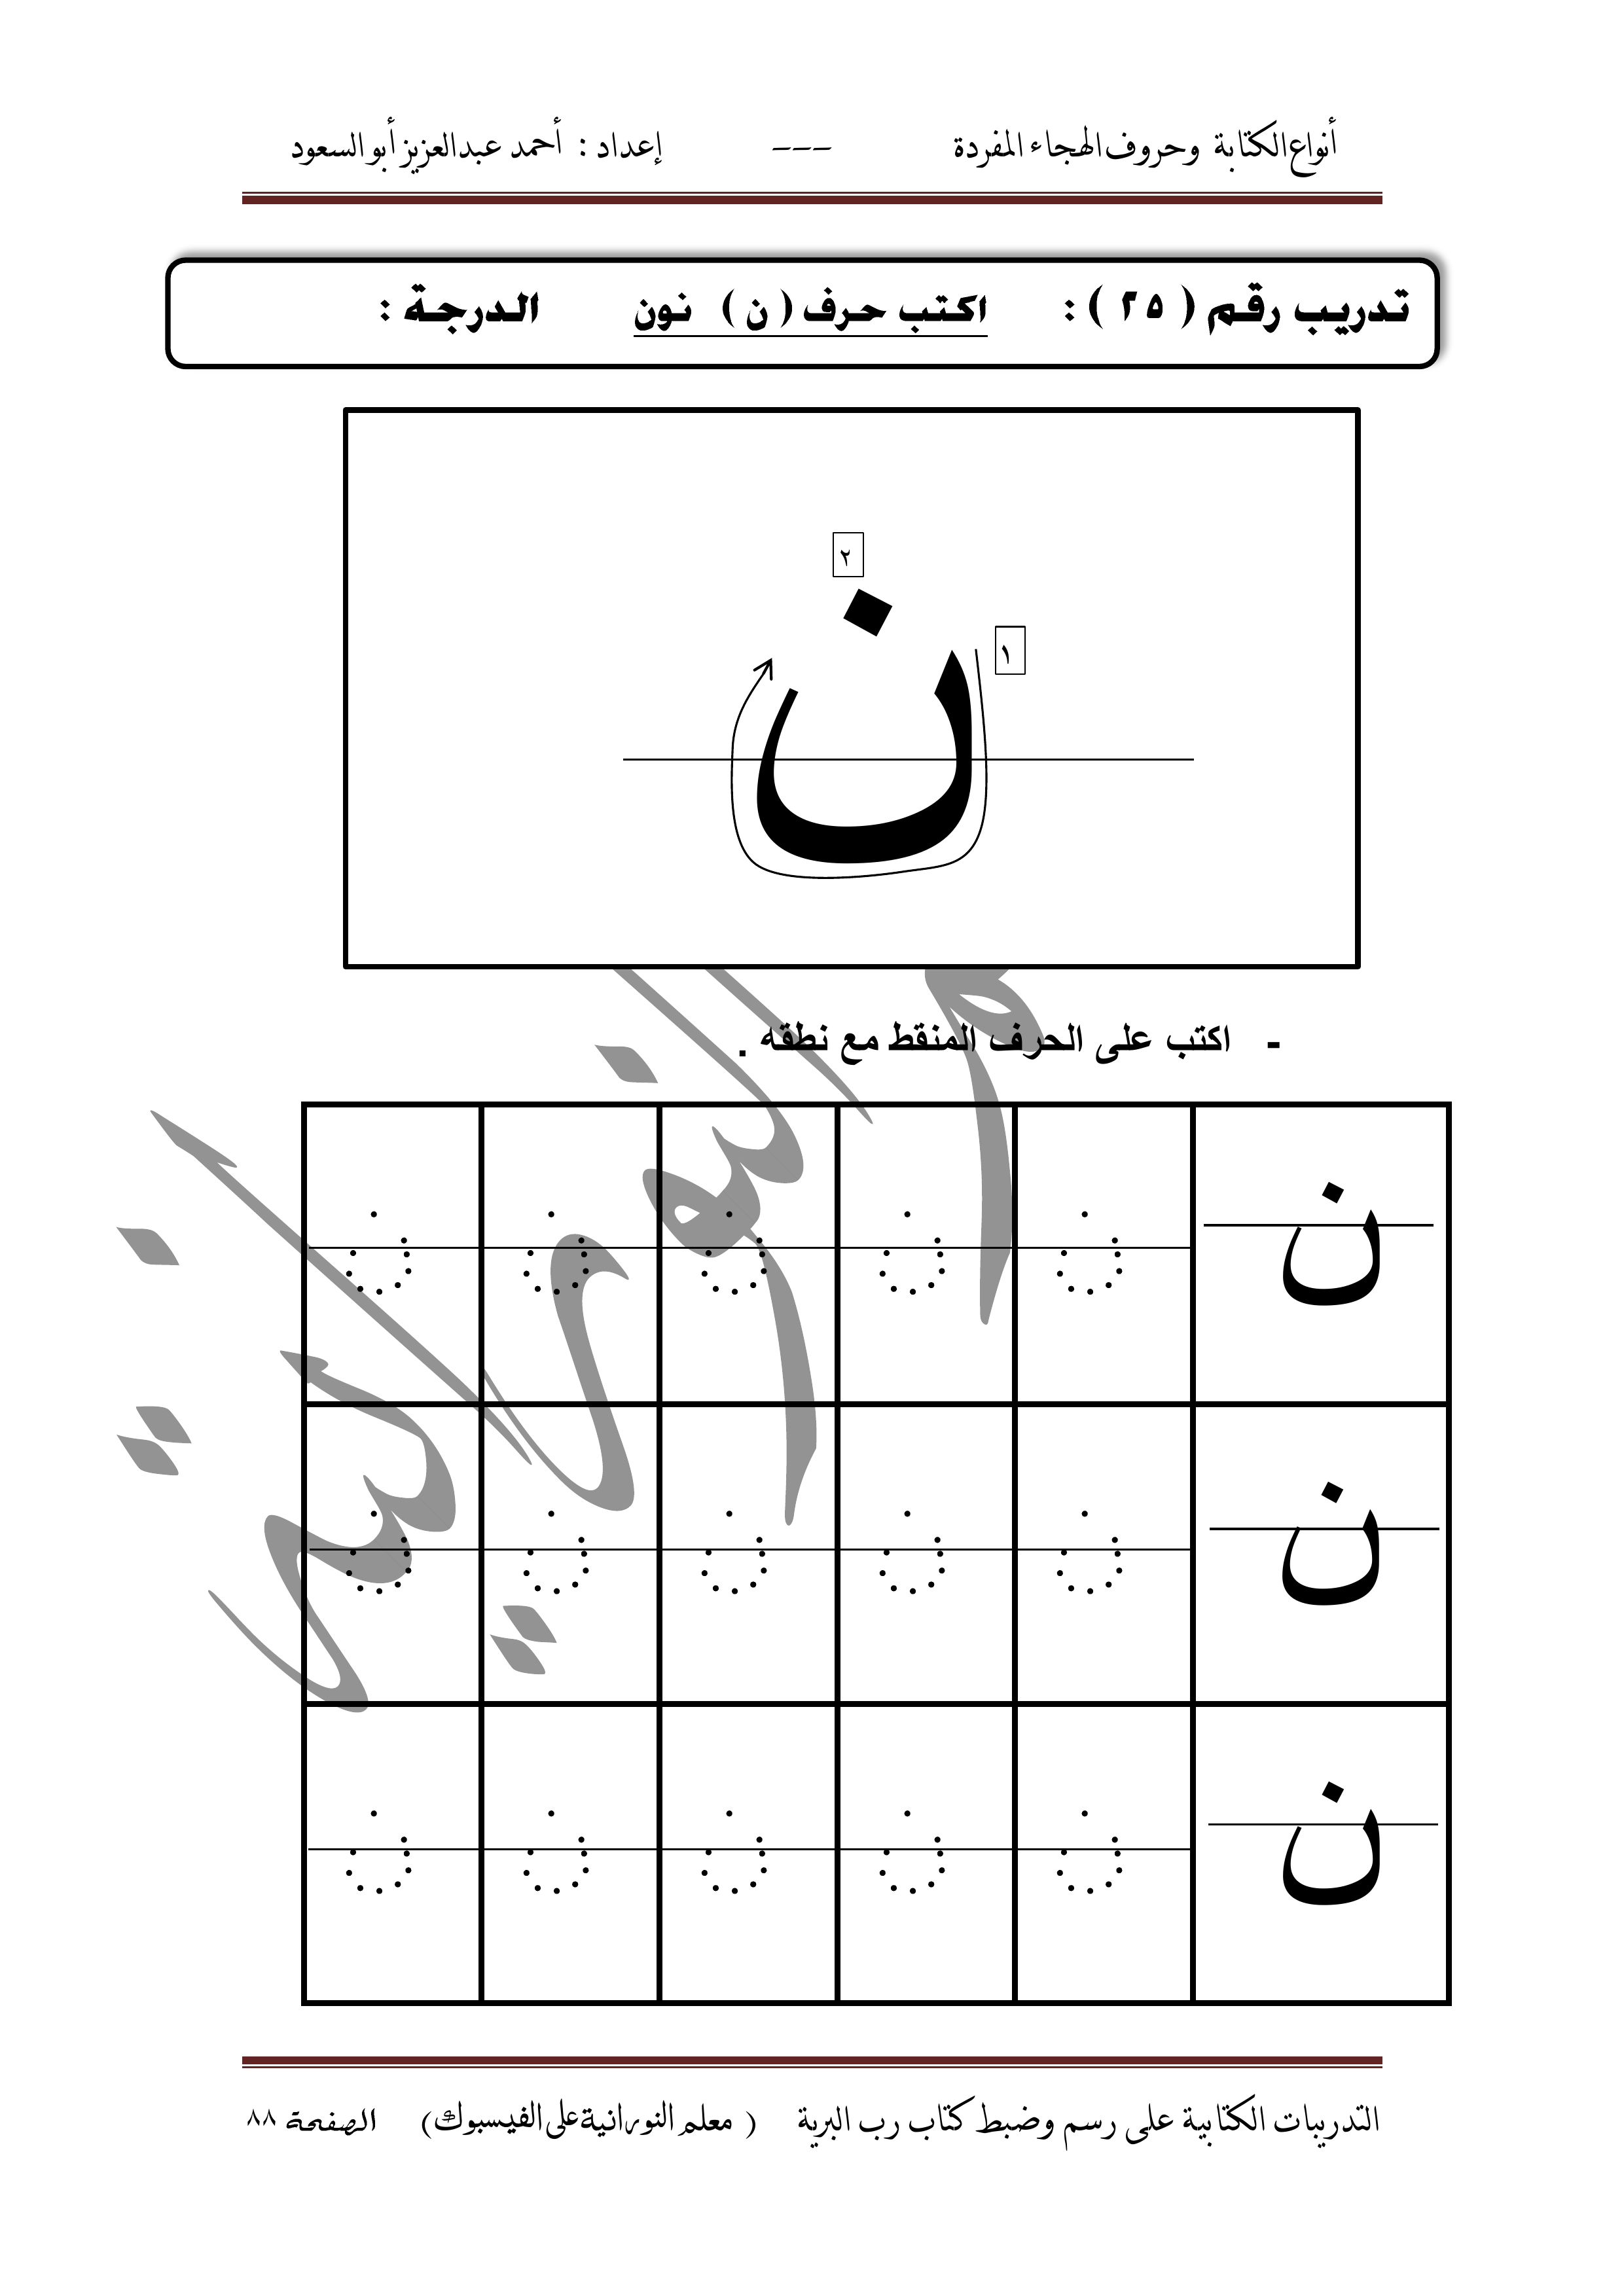 أنواع الكتابة وحروف الهجاء المفردة --- إعداد : أحمد عبدالعزيز أبو السعود
تدريب رقم ( ٢٥ ) : اكتب حرف ( ن ) نون الدرجة :
٢
١
ن
- اكتب على الحرف المنقط مع نطقه .
ن ن ن ن ن ن
ن ن ن ن ن ن
ن ن ن ن ن ن
التدريبات الكتابية على رسم وضبط كتاب رب البرية ( معلم النورانية على الفيسبوك) الصفحة ٨٨